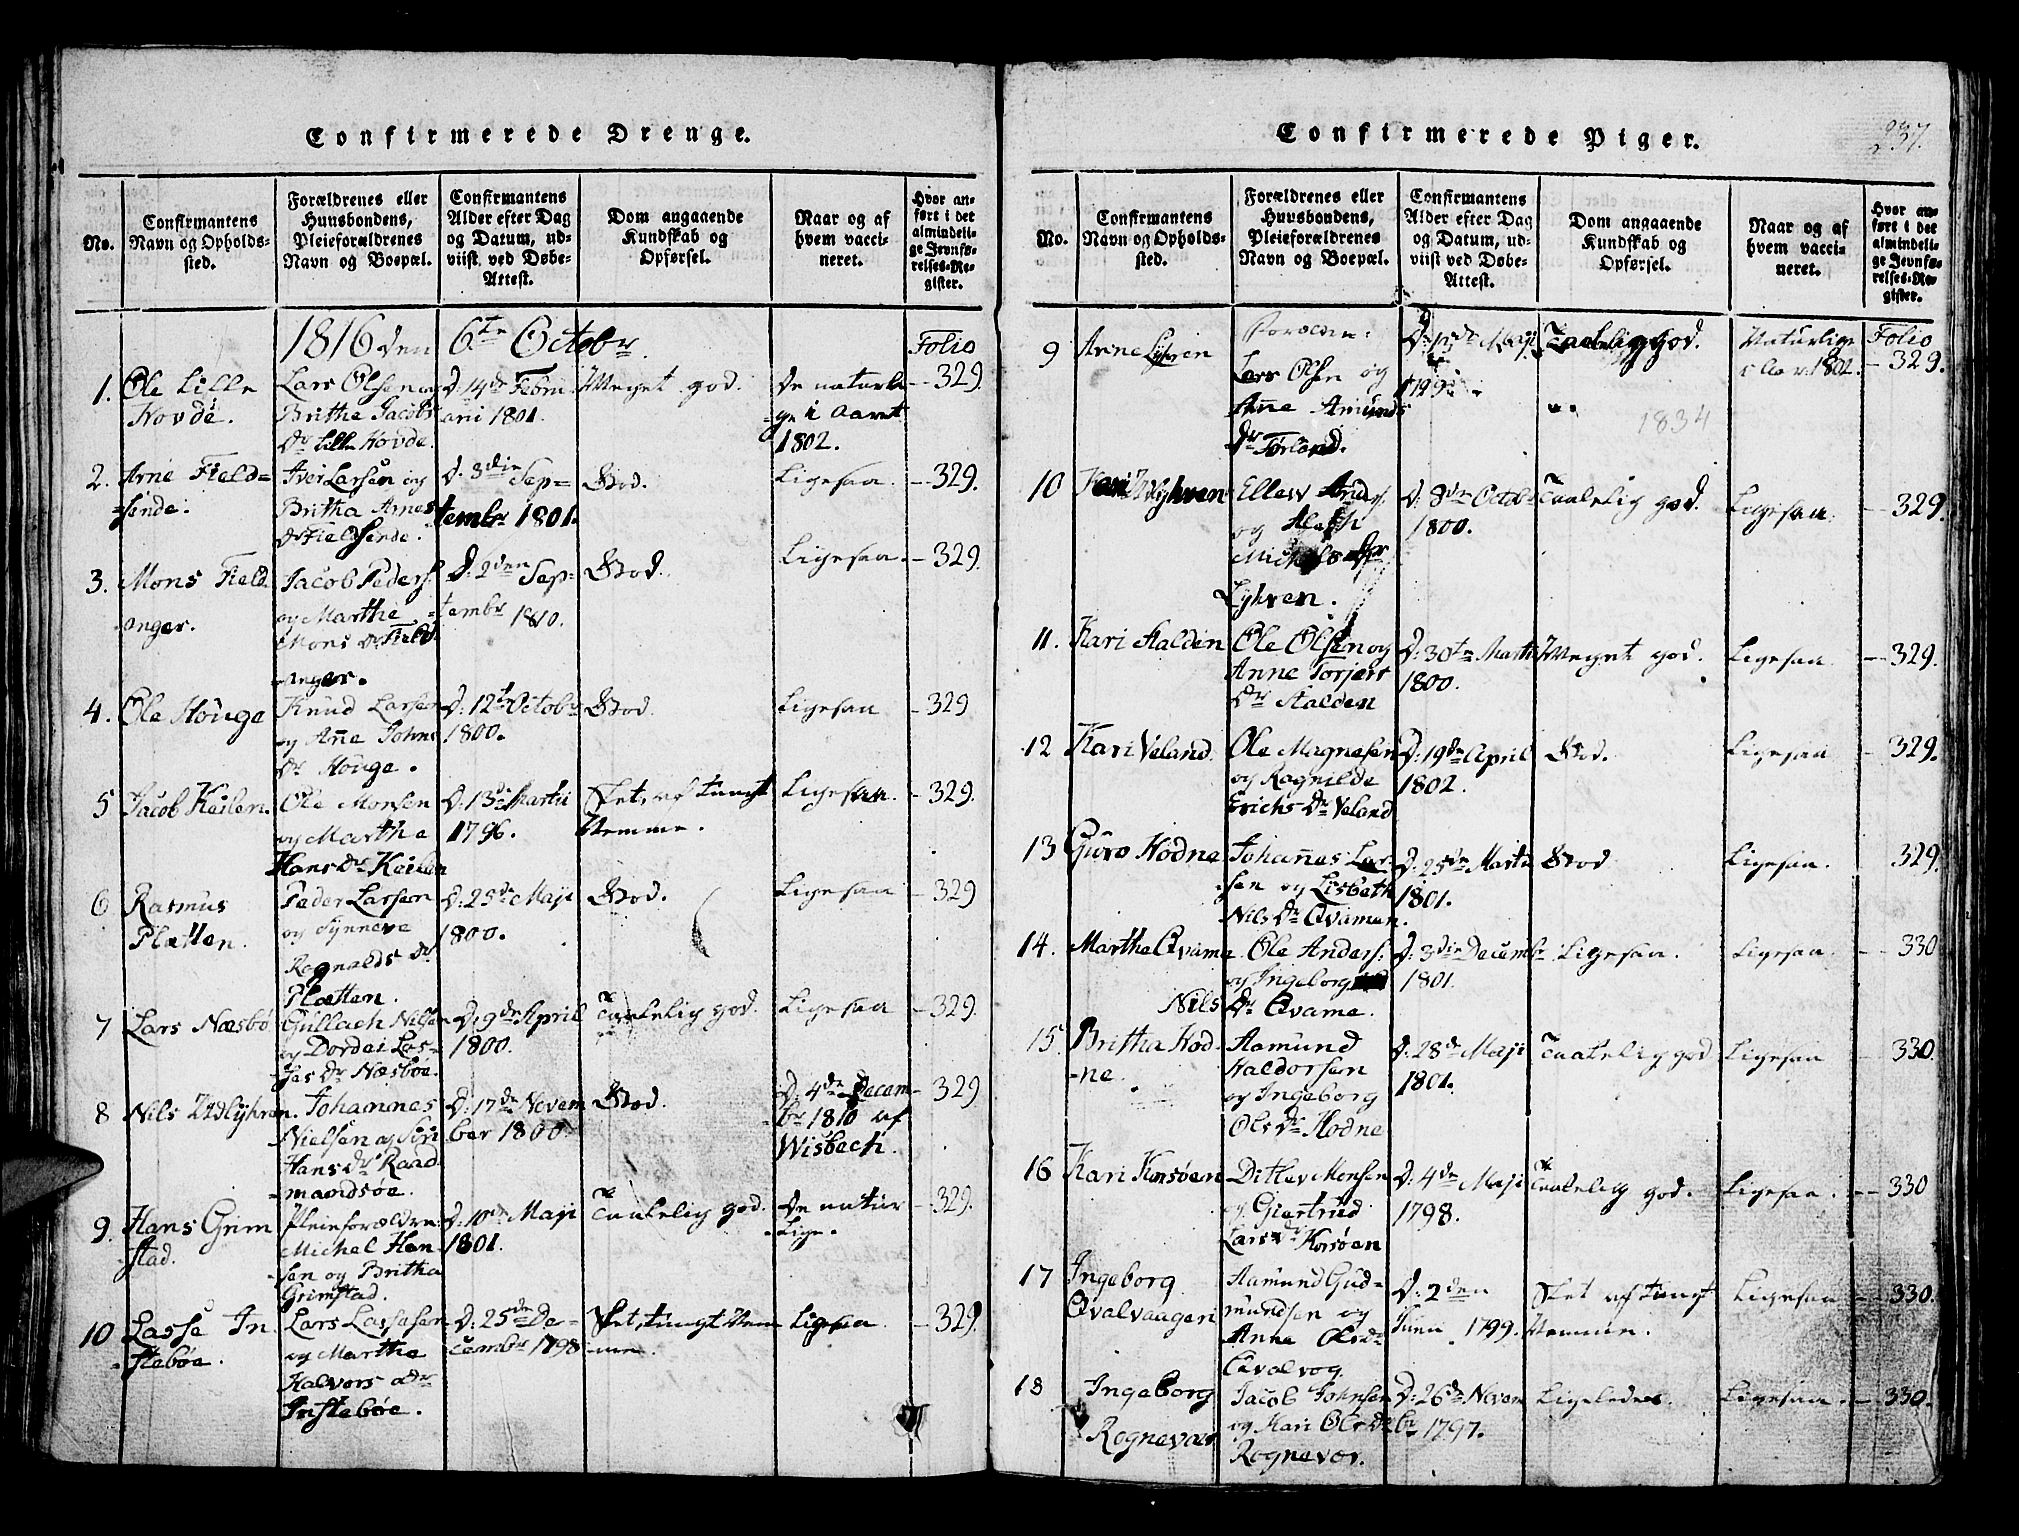 Confirmerede Drenge.
No.
Confirmantens
Navn og Opholds-
sted.
Forældrenes eller
Huusbondens,
Pleieforældrenes
Navn og Boepæl.
Confirmantens
Alder efter Dag
og Datum, ud-
viist ved Døbe-
Attest.
Dom angaaende
Kundskab og
Opførsel.
Naar og af
hvem vacci-
neret.
Hvor an-
ført i det
almindeli-
ge Jevnfø-
relses-Re-
gister.
1816 den 6te Octobr
Folio
1. Ole Lille
Hovde.
Lars Olsen og
Brithe Jacobs
Dr Lille Hovde.
D. 14de Febru
arii 1801.
Meget god.
De naturli
ge i Aaret
1802.
329.
2. Arne Field=
sende.
Iver Larsen og
Britha Arnes
Dr Fieldsende.
D. 8die Sep=
tembr 1801.
God.
Ligesaa.
329.
3. Mons Field
anger.
Jacob Peders.
og Marthe
Mons Dr Field
anger.
D. 2den Sep=
tembr 1810.
God.
Ligesaa.
329.
4. Ole Houge
Knud Larsen
og Anne Johns
Dr Houge.
D. 12te Octobr
1800.
God.
Ligesaa
329
5 Jacob Keilen.
Ole Monsen
og Martha
Hans Dr Keilen
D. 13de Martii
1796.
Slet, af tungt
Nemme.
Ligesaa.
329.
6 Rasmus
Plætten.
Peder Larsen
og Synneve
Rognalds Dr
Plætten.
D. 25de Maji
1800.
God.
Ligesaa
329
7 Lars Næsbø
Gullach Nilsen
og Dordei Las=
ses Dr Næsbøe.
D. 9de April
1800.
Taalelig god.
Ligesaa
329.
8 Nils Udlyhren.
Johannes
Nielsen og Siri
Hans dr Raad
mandsøe.
D. 17de Novem
ber 1800
God.
D. 4de Decem
br 1810 af
Wisbech.
329
9 Hans Grim
stad.
Pleieforældre:
Michel Han
sen og Britha
Grimstad.
D. 10de Maji
1801.
Taalelig god.
De natur
lige.
329.
10 Lasse In
stebøe.
Lars Lassesen
og Marthe
Halvors dtr
Instebøe.
D. 25de De=
cembr 1798
Slet, tungt Nem
me.
Ligesaa.
329.
Confirmerede Piger.
237.
No.
Confirmantens
Navn og Opholds-
sted.
Forældrenes eller
Huusbondens,
Pleieforældrenes
Navn og Boepæl.
Confirmantens
Alder efter Dag
og Datum, ud-
viist ved Døbe-
Attest.
Dom angaaende
Kundskab og
Opførsel.
Naar og af
hvem vacci-
neret.
Hvor an-
ført i det
almindeli-
ge Jevnfø-
relses-Re-
gister.
9 Anne Lyhren
Lars Olsen og
Anne Amunds
dr Førland.
Taalelig god.
1834
Naturlige
1802.
Folio
329.
10 Kari Udlyhren
Ellew Anders.
og
Michels Dtr
Lyhren.
D. 8de Octobr
1800.
Taalelig god.
Ligesaa.
329.
11. Kari Halden
Ole Olsen og
Anne Torjers
Dr Halden
D. 30te Martii
1800.
Meget god.
Ligesaa.
329.
12 Kari Veland.
Ole Magnesen
og Ragnilde
Erichs Dr Veland
D. 19de April
1802.
God.
Ligesaa
329.
13 Guro Hodne
Johannes Lar=
sen og Lisbeth
Nils Dr Qvamen.
D. 25de Martii
1801.
God
Ligesaa.
329.
14. Martha Qvame
Ole Anders.
og Ingeborg
Nils Dr Qvame.
D. 3die Decembr
1801.
Ligesaa.
Ligesaa.
330
15. Britha Hod=
ne.
Aamund
Haldorsen
og Ingeborg
Ols Dr Hodne
D. 28de Maji
1801.
Taalelig god
Ligesaa
330.
16 Kari Korsøen
Ditlev Monsen
og Giertrud
Lars Dr Korsøen
D. 4de Maji
1798.
Taalelig god.
Ligesaa.
330
17 Ingeborg
Qvalvaagen
Aamund Gud=
mundsen og
Anne Ols dr
Qvalvog.
D. 2den
Juni 1799.
Slet af tungt
Nemme.
Ligesaa
330.
18 Ingeborg
Rognevær
Jacob Johnsen
og Kari Ols Dr
Rognevær.
D. 26de Novem
br 1797.
Ligeledes.
Ligesaa.
330.